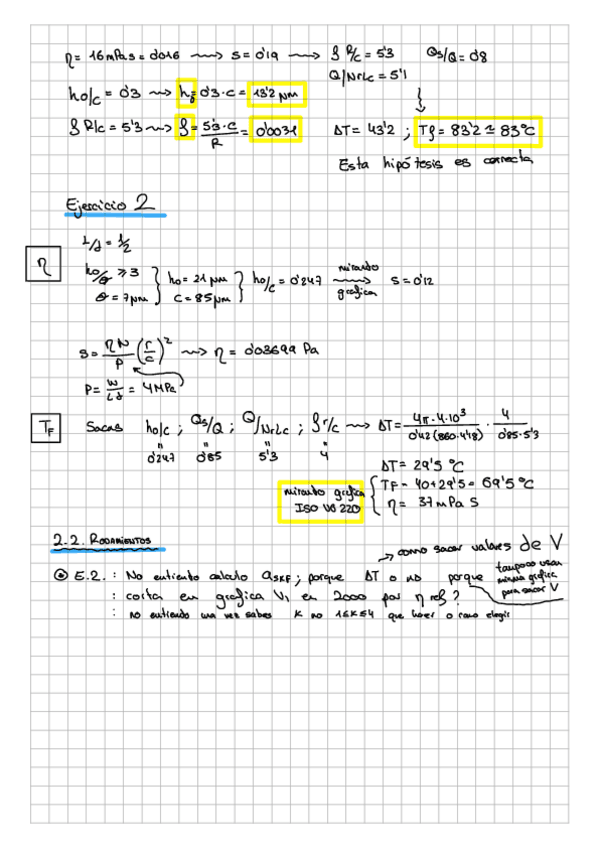 η = 16mPa s = 0'016 ⟿ S = 0'19 ⟿ f R/c = 5'3 Qs/Q = 0'8
Q/NrLc = 5'1
ho/c = 0'3 ⟿ ho = 0'3·c = 13'2 μm
f R/c = 5'3 ⟿ f = 5'3·c/R = 0'0031 ΔT = 43'2 ; Tf = 83'2 ≃ 83°C
Esta hipótesis es correcta
Ejercicio 2
L/d = 1/2
η
ho/σ ≥ 3 } ho = 21 μm } ho/c = 0'247 mirando grafica ⟶ S = 0'12
σ = 7μm } c = 85 μm }
S = ηN/P (r/c)² ⟿ η = 0'03699 Pa
P = W/Ld = 4 MPa
TF
Sacas ho/c ; Qs/Q ; Q/NrLc ; f r/c ⟶ ΔT = 4π·4·10³/0'42(860·4'18) · 4/0'85·5'3
0'247 0'85 5'3 4
ΔT = 29'5 °C
mirando grafica { TF = 40+29'5 = 69'5°C
ISO VG 220 { η = 37 mPa s
2.2. RODAMIENTOS
→ como sacar valores de V
⊙ E.2. : No entiento calculo aSKF ; porque ΔT o no porque tampoco usan misma grafica para sacar V
: corta en grafica V1 en 2000 por η ref ?
: no entiendo una vez sabes K no 1≤K≤4 que hacer o caso elegir